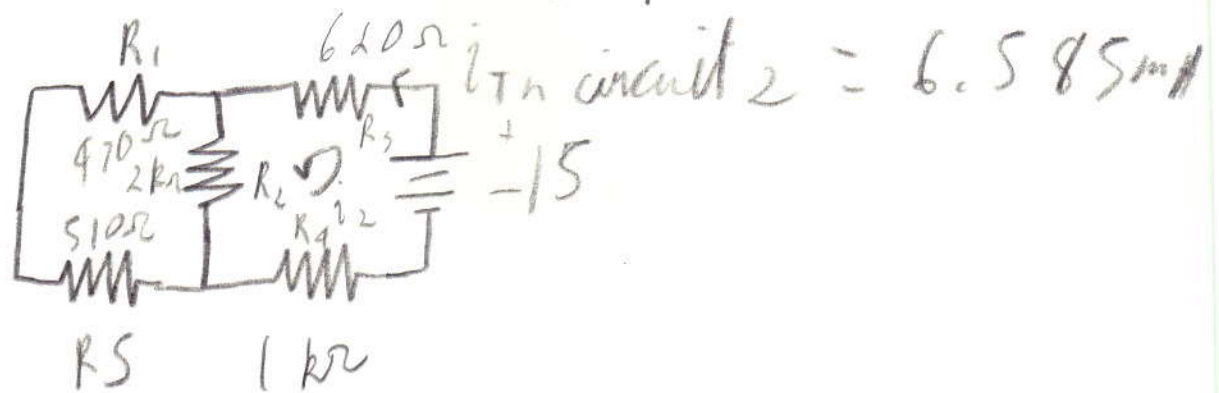 R1 620Ω iT in circuit 2 = 6.585mA
470Ω R3 +
2kΩ R2 - 15
510Ω R4 i2
R5 1kΩ